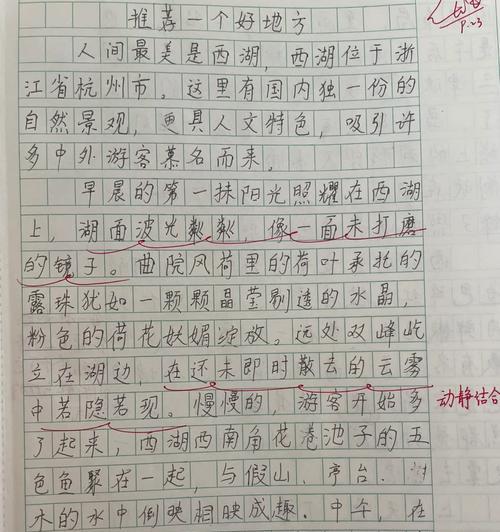 推荐一个好地方
人间最美是西湖,西湖位于浙
江省杭州市。这里有国内独一份的
自然景观,更具人文特色,吸引许
多中外游客慕名而来。
早晨的第一抹阳光照耀在西湖
上,湖面波光粼粼,像一面未打磨
的镜子。曲院风荷里的荷叶承托的
露珠犹如一颗颗晶莹剔透的水晶,
粉色的荷花妖媚绽放。远处双峰屹
立在湖边,在还未即时散去的云雾
中若隐若现。慢慢的,游客开始多
动静结合
了起来,西湖西南角花港池子的五
色鱼聚在一起,与假山、亭台、树
木的水中倒映相映成趣。中午,在